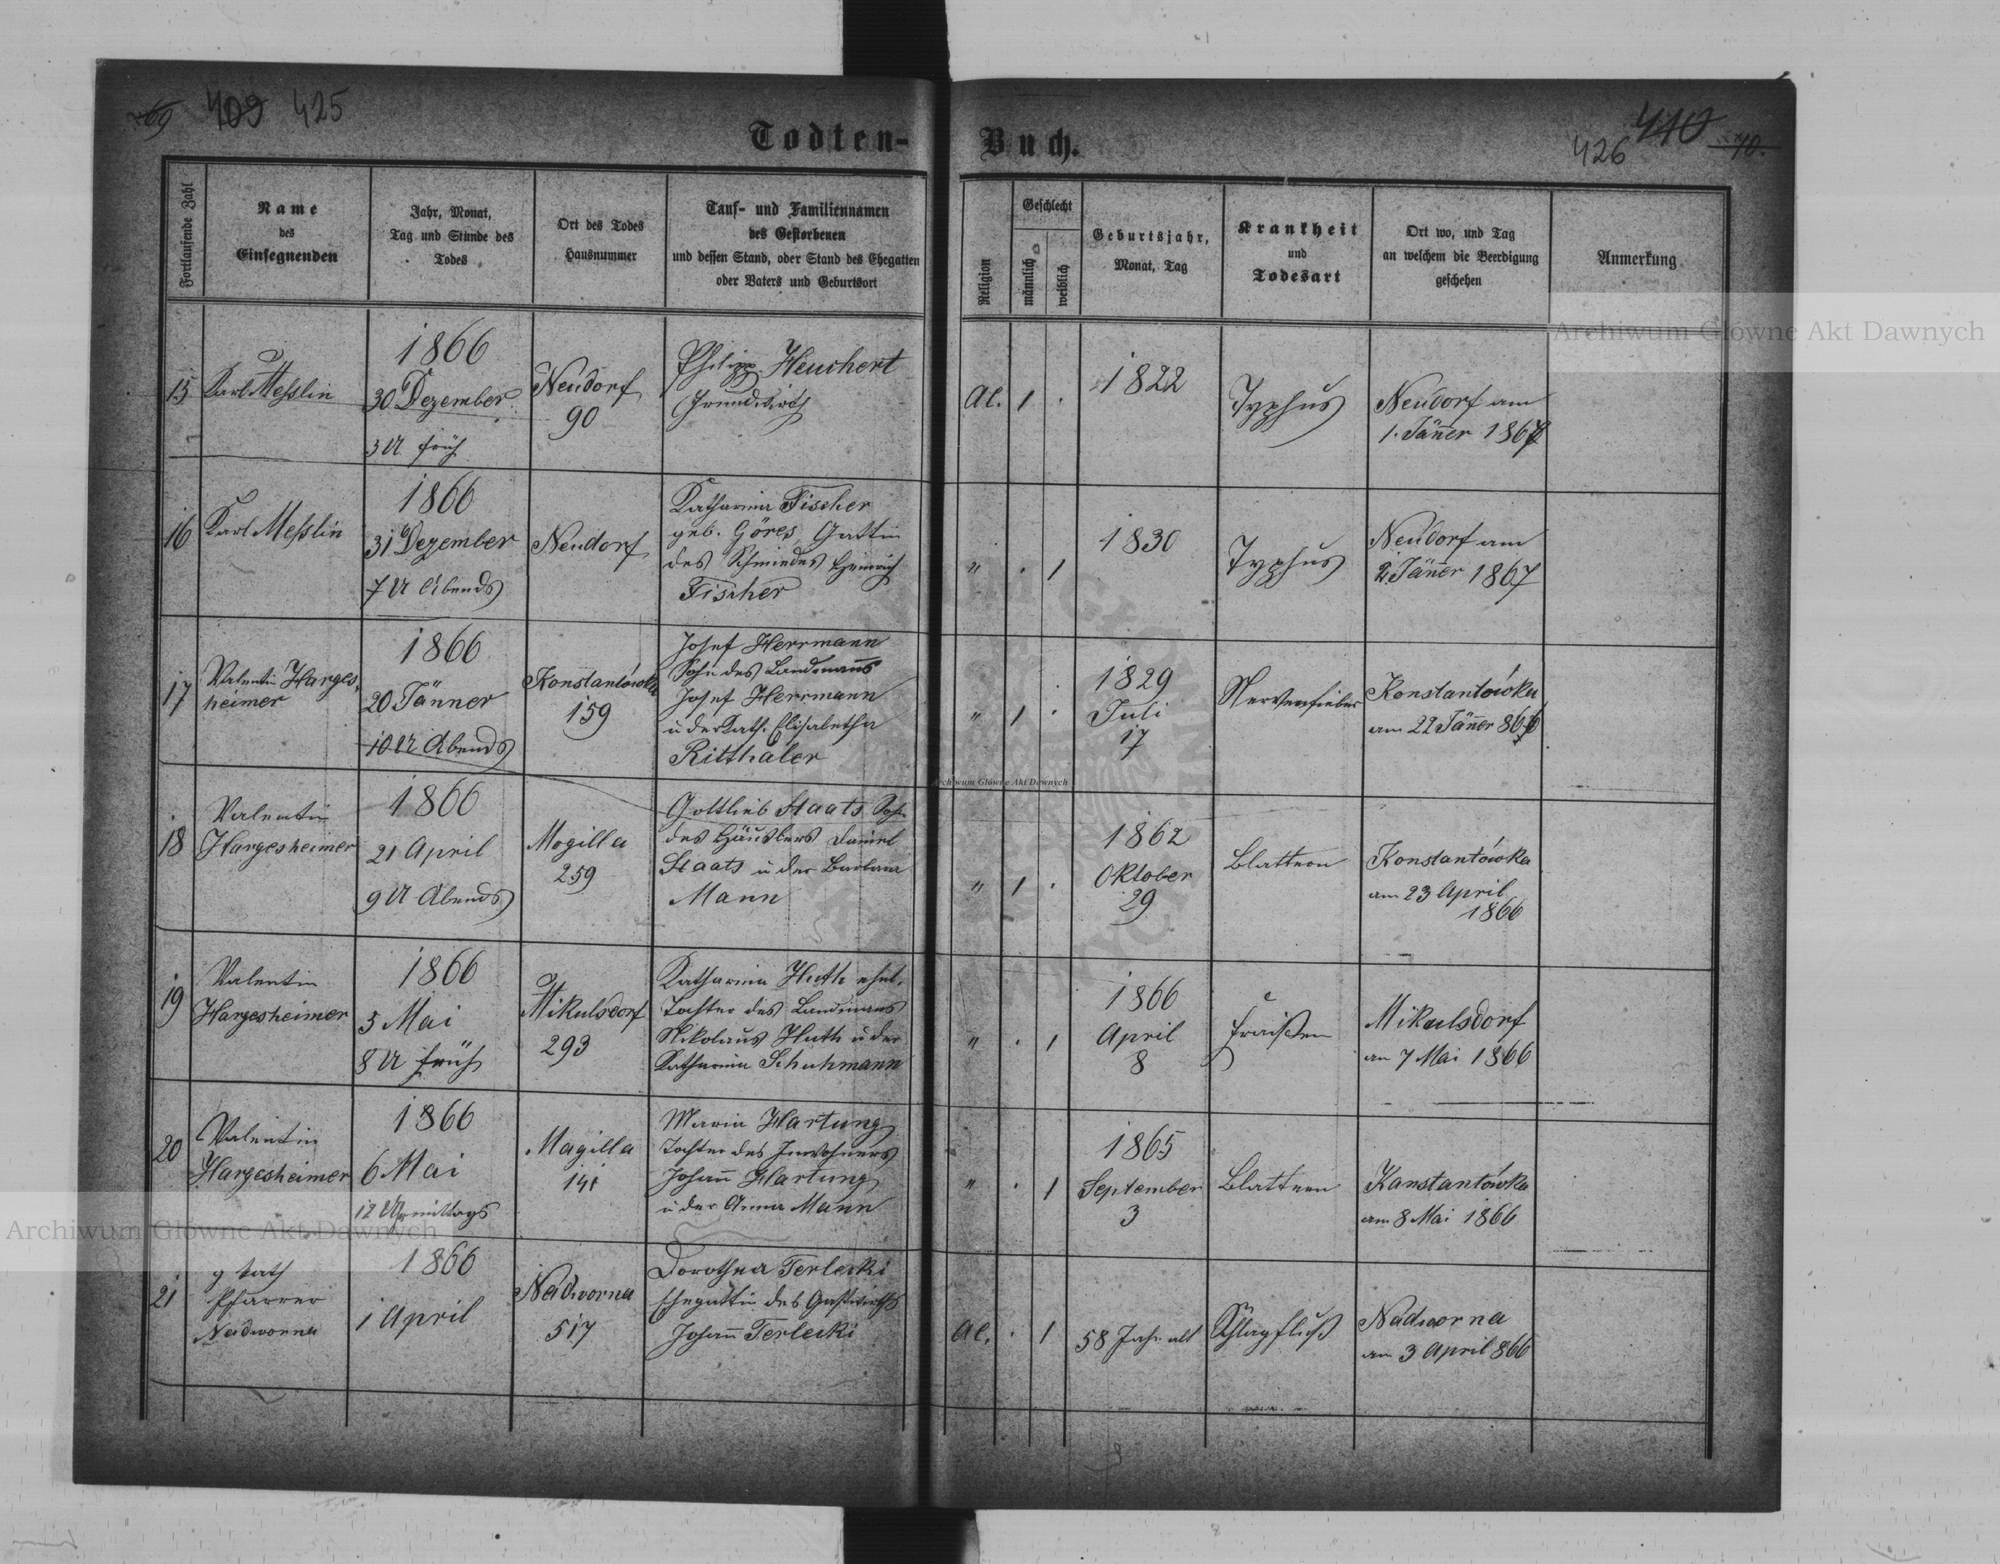 409 425
Todten-
Fortlaufende Zahl
Name
des
Einsegnenden
Jahr, Monat,
Tag und Stunde des
Todes
Ort des Todes
Hausnummer
Tauf- und Familiennamen
des Gestorbenen
und dessen Stand, oder Stand des Ehegatten
oder Vaters und Geburtsort
15
Karl Messlin
1866
30 Dezember
3 U früh
Neudorf
90
Philipp Heuchert
Grundwirth
16
Karl Messlin
1866
31 Dezember
7 U Abends
Neudorf
Katharina Fischer
geb. Göres, Gattin
des Schmiedes Heinrich
Fischer
17
Valentin Harges-
heimer
1866
20 Jänner
10 U Abends
Konstantówka
159
Josef Herrmann
Sohn des Landmanns
Josef Herrmann
u der Kath. Elisabetha
Ritthaler
18
Valentin
Hargesheimer
1866
21 April
9 U Abends
Mogilla
259
Gottlieb Staats Sohn
des Häuslers Daniel
Staats u der Barbara
Mann
19
Valentin
Hargesheimer
1866
5 Mai
8 U früh
Mikulsdorf
293
Katharina Huth ehel.
Tochter des Landmans
Nikolaus Huth u der
Katharina Schuhmann
20
Valentin
Hargesheimer
1866
6 Mai
12 U mittags
Mogilla
141
Maria Hartung
Tochter des Inwohners
Johann Hartung
u der Anna Mann
21
Pfarrer
Nadworna
1866
1 April
Nadworna
517
Dorothea Terlecki
Ehegattin des Gastwirths
Johann Terlecki
Buch.
426 410 70.
Religion
Geschlecht
männlich
weiblich
Geburtsjahr,
Monat, Tag
Krankheit
und
Todesart
Ort wo, und Tag
an welchem die Beerdigung
geschehen
Anmerkung
AC. 1 .
1822
Typhus
Neudorf am
1. Jänner 1867
" . 1
1830
Typhus
Neudorf am
2. Jänner 1867
" 1 .
1829
Juli
17
Nervenfieber
Konstantówka
am 22 Jänner 866
" 1 .
1862
Oktober
29
Blattern
Konstantówka
am 23 April
1866
" . 1
1866
April
8
Fraißen
Mikulsdorf
am 7 Mai 1866
" . 1
1865
September
3
Blattern
Konstantówka
am 8 Mai 1866
AC. . 1
58 Jahr alt
Schlagfluß
Nadworna
am 3 April 866
Archiwum Główne Akt Dawnych
Archiwum Główne Akt Dawnych
Archiwum Główne Akt Dawnych